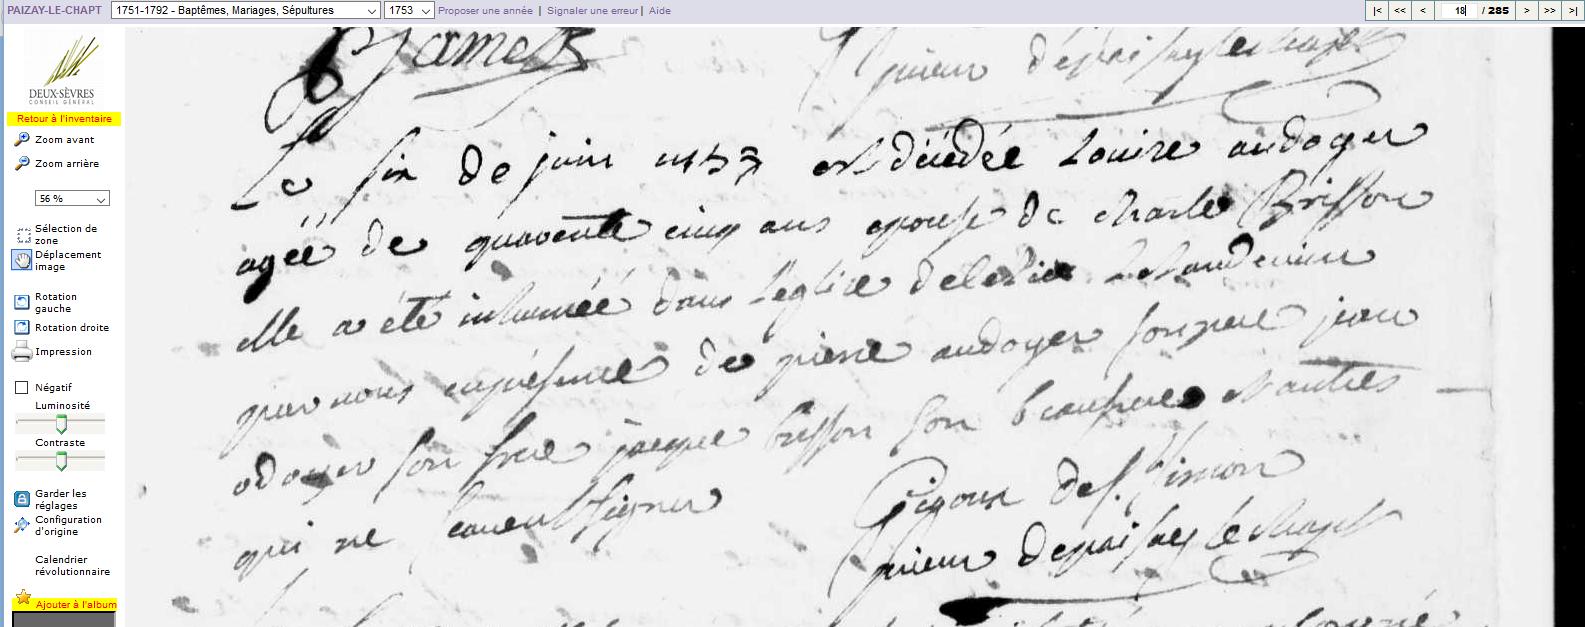 PAIZAY-LE-CHAPT 1751-1792 - Baptêmes, Mariages, Sépultures 1753 Proposer une année | Signaler une erreur | Aide |< << < 18 / 285 > >> >|
DEUX-SÈVRES
CONSEIL GÉNÉRAL
Retour à l'inventaire
Zoom avant
Zoom arrière
56 %
Sélection de
zone
Déplacement
image
Rotation
gauche
Rotation droite
Impression
Négatif
Luminosité
Contraste
Garder les
réglages
Configuration
d'origine
Calendrier
révolutionnaire
Ajouter à l'album
prieur depaisay le chapt
Le six de juin 1753 est décédée Louise audoyer
agée de quarente cinq ans epouse de charle Brisson
elle a été inhumée dans leglise le landemain
par nous en présence de pierre audoyer son pere jean
odoyer son frere jacque brisson son beaufrere et autres
qui ne savent signer
Gigoux def. Simon
prieur depaisay le chapt